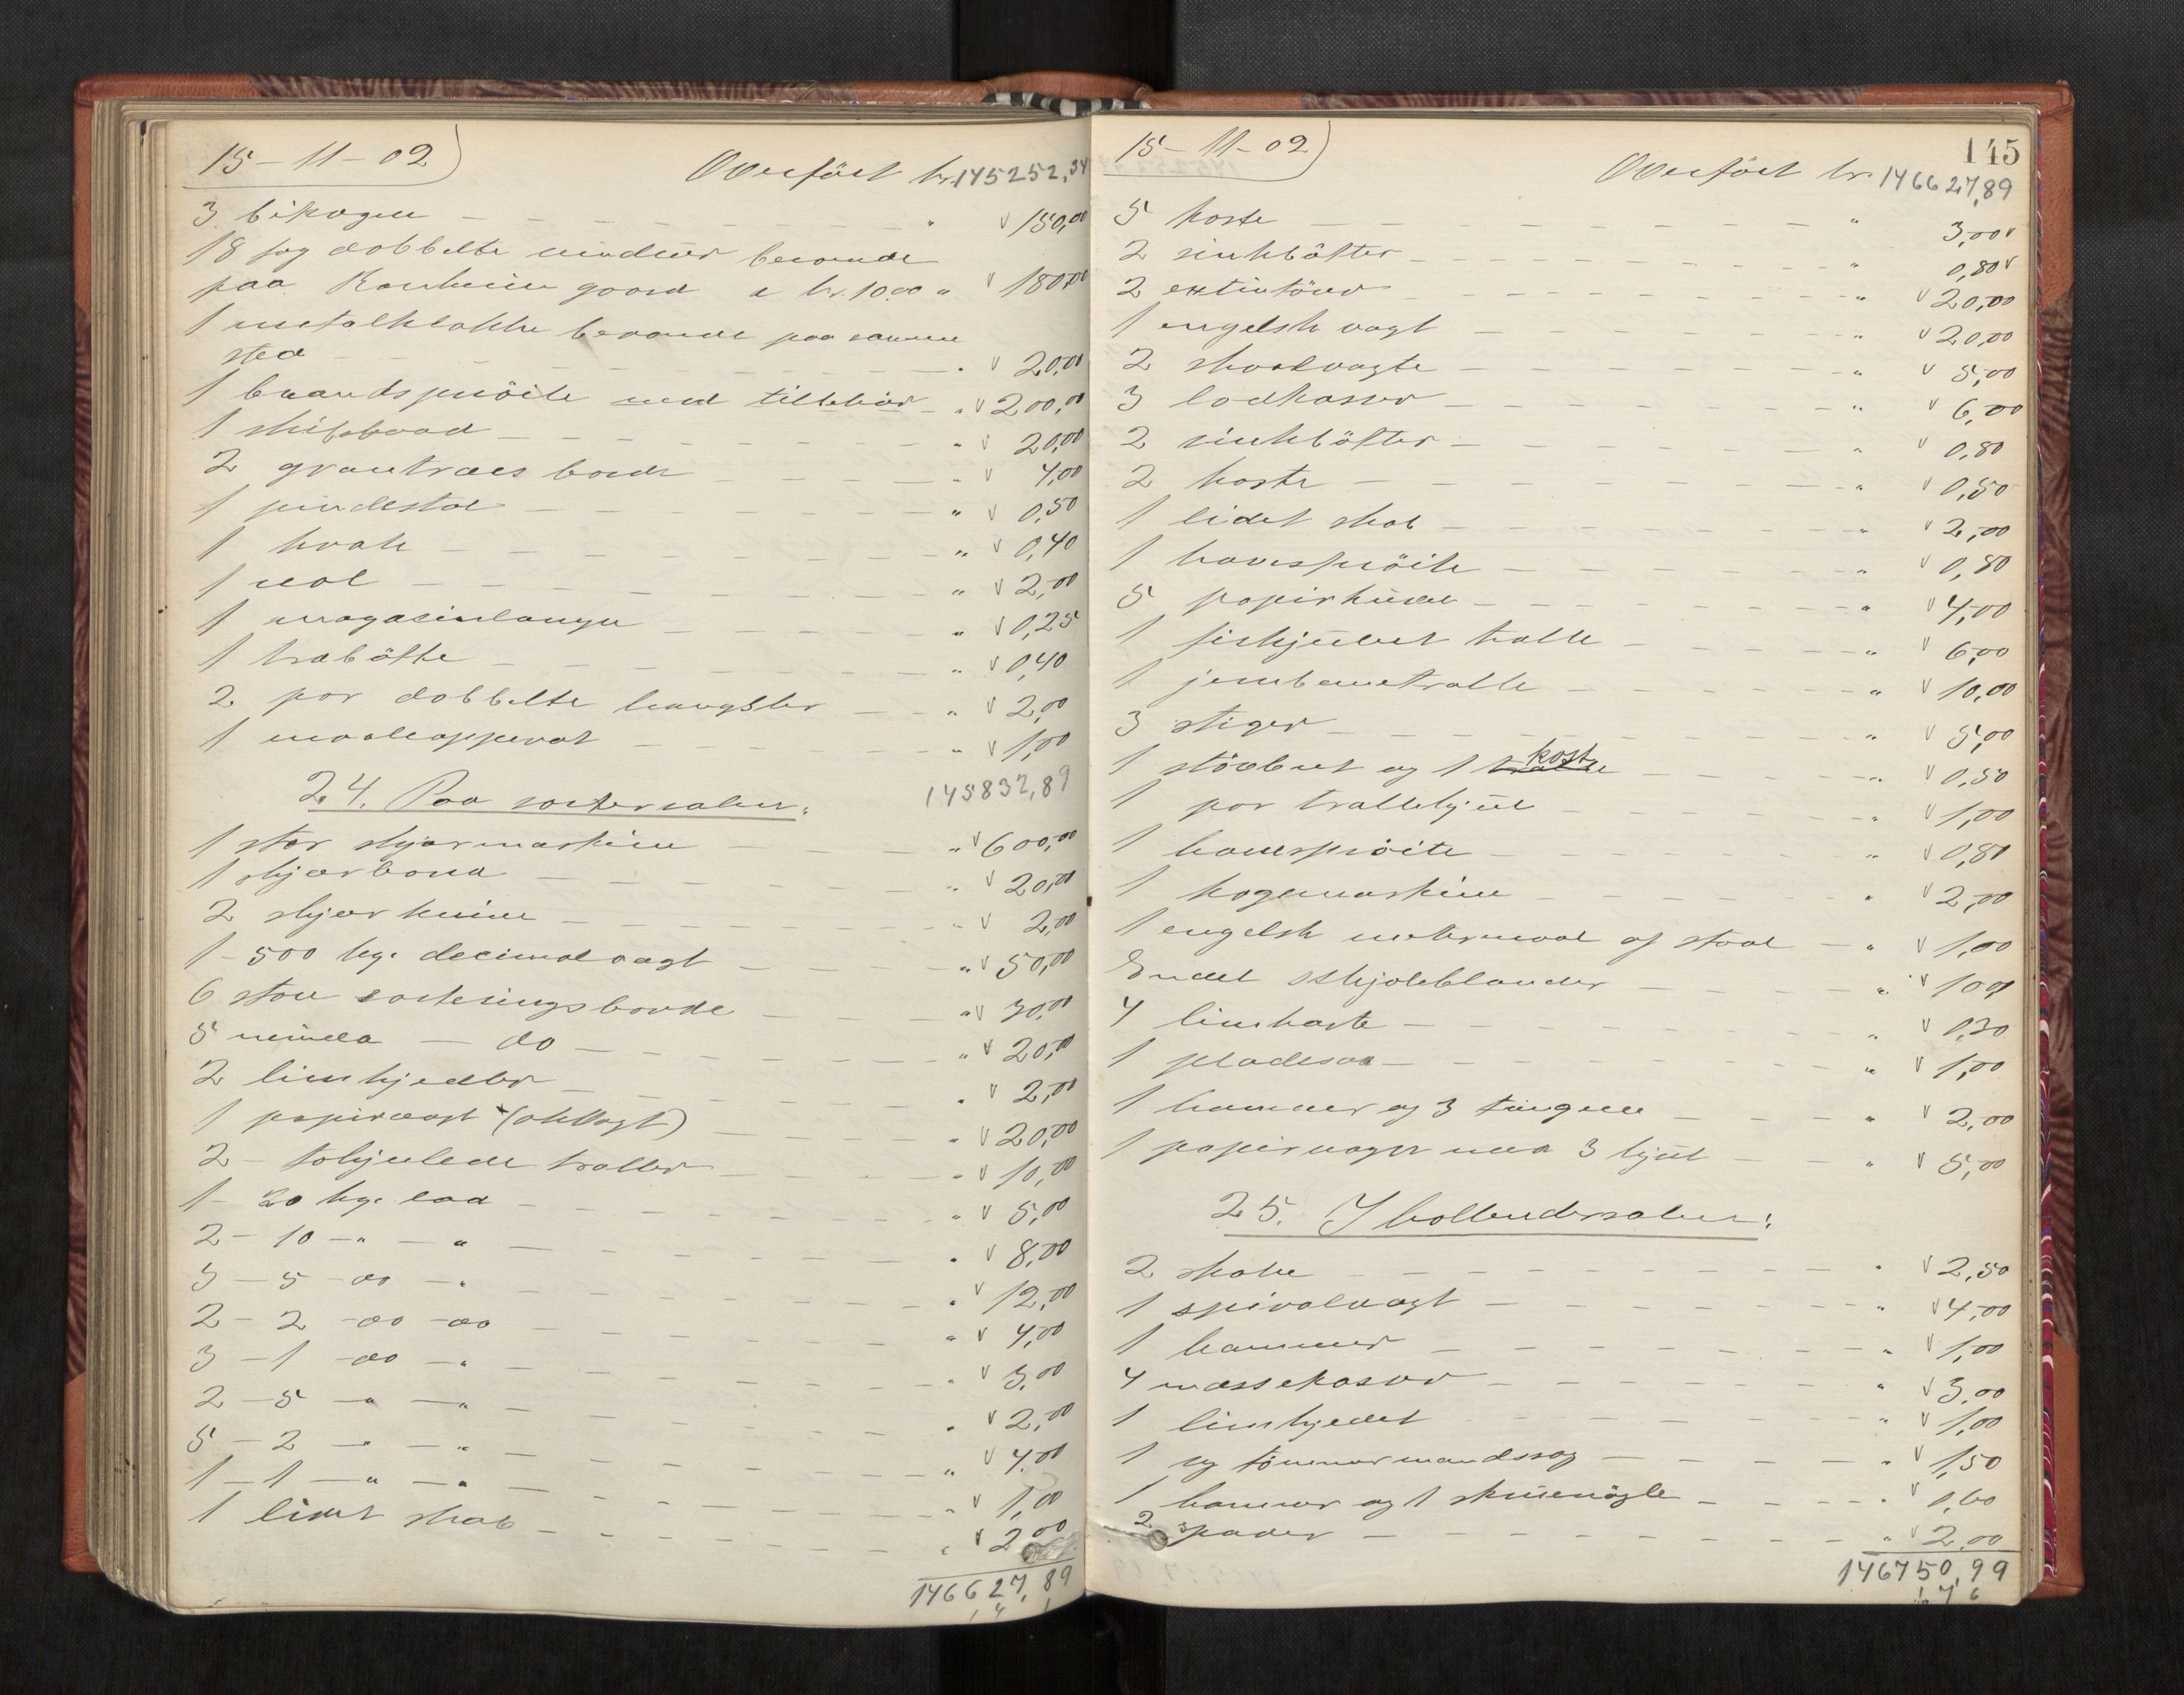 15-11-02)
Overført kr. 145252,34
3 bikager " v 150,00
18 fag dobbelte vinduer beroende
paa Ranheim gaard a kr. 10.00 " v 180,00
1 metalklokke beroende paa samme
sted " v 20,00
1 brandsprøite med tilbehør " v 200,00
1 skibsbaad " v 20,00
2 grantræes borde " v 4,00
1 pindestol " v 0,50
1 krak " v 0,40
1 2,00
1 magasinlampe " v 0,25
1 træbøtte " v 0,40
2 par dobbelte hængsler " v 2,00
1 maaleapperat " v 1,00
145832,89
24. Paa sortersalen:
1 stor skjærmaskine " v 600,00
1 skjærbord " v 20,00
2 skjær knive " v 2,00
1 - 500 kg. decimalvægt " v 50,00
6 store sorteringsborde " v 30,00
5 mindre - do " v 20,00
2 limkjedler " v 2,00
1 papirvægt (arkvægt) " v 20,00
2 - tohjulede traller " v 10,00
1 - 20 kg. lod " v 5,00
2 - 10 - " - " " v 8,00
3 - 5 - do - " " v 12,00
2 - 2 - do - do " v 4,00
3 - 1 - do - " " v 3,00
2 - 5 - " - " " v 2,00
5 - 2 - " - " " v 4,00
1 - 1 - " - " " v 1,00
1 lidet skab " v 2,00
146627,89
15-11-02)
145
Overført kr. 146627,89
5 koste " 3,00 v
2 sinkbøtter " 0,80 v
2 extintører " v 20,00
1 engelsk vægt " v 20,00
2 skaalvægte " v 5,00
3 lodkasser " v 6,00
2 sinkbøtter " v 0,80
2 koste " v 0,50
1 lidet skab " v 2,00
1 havesprøite " v 0,80
5 papirhider " v 4,00
1 firhjulet tralle " v 6,00
1 jernbanetralle " v 10,00
3 stiger " v 5,00
1 støvbret og 1 kost " v 0,50
1 par trallehjul " v 1,00
1 havesprøite " v 0,80
1 kogemaskine " v 2,00
1 engelsk metermaal af staal " v 1,00
Endel " v 10,0
4 limkoste " v 0,30
1 pladesax " v 1,00
1 hammer og 3 tænger " v 2,00
1 papirvogn med 3 hjul " v 5,00
25. I hollendersalen:
2 skabe " v 2,50
1 spiralvægt " v 4,00
1 hammer " v 1,00
4 massekasser " v 3,00
1 limkjedel " v 1,00
1 ny tømmermandssag " v 1,50
1 hammer og 1 skruenøgle " v 0,60
2 spader " v 2,00
146750,99